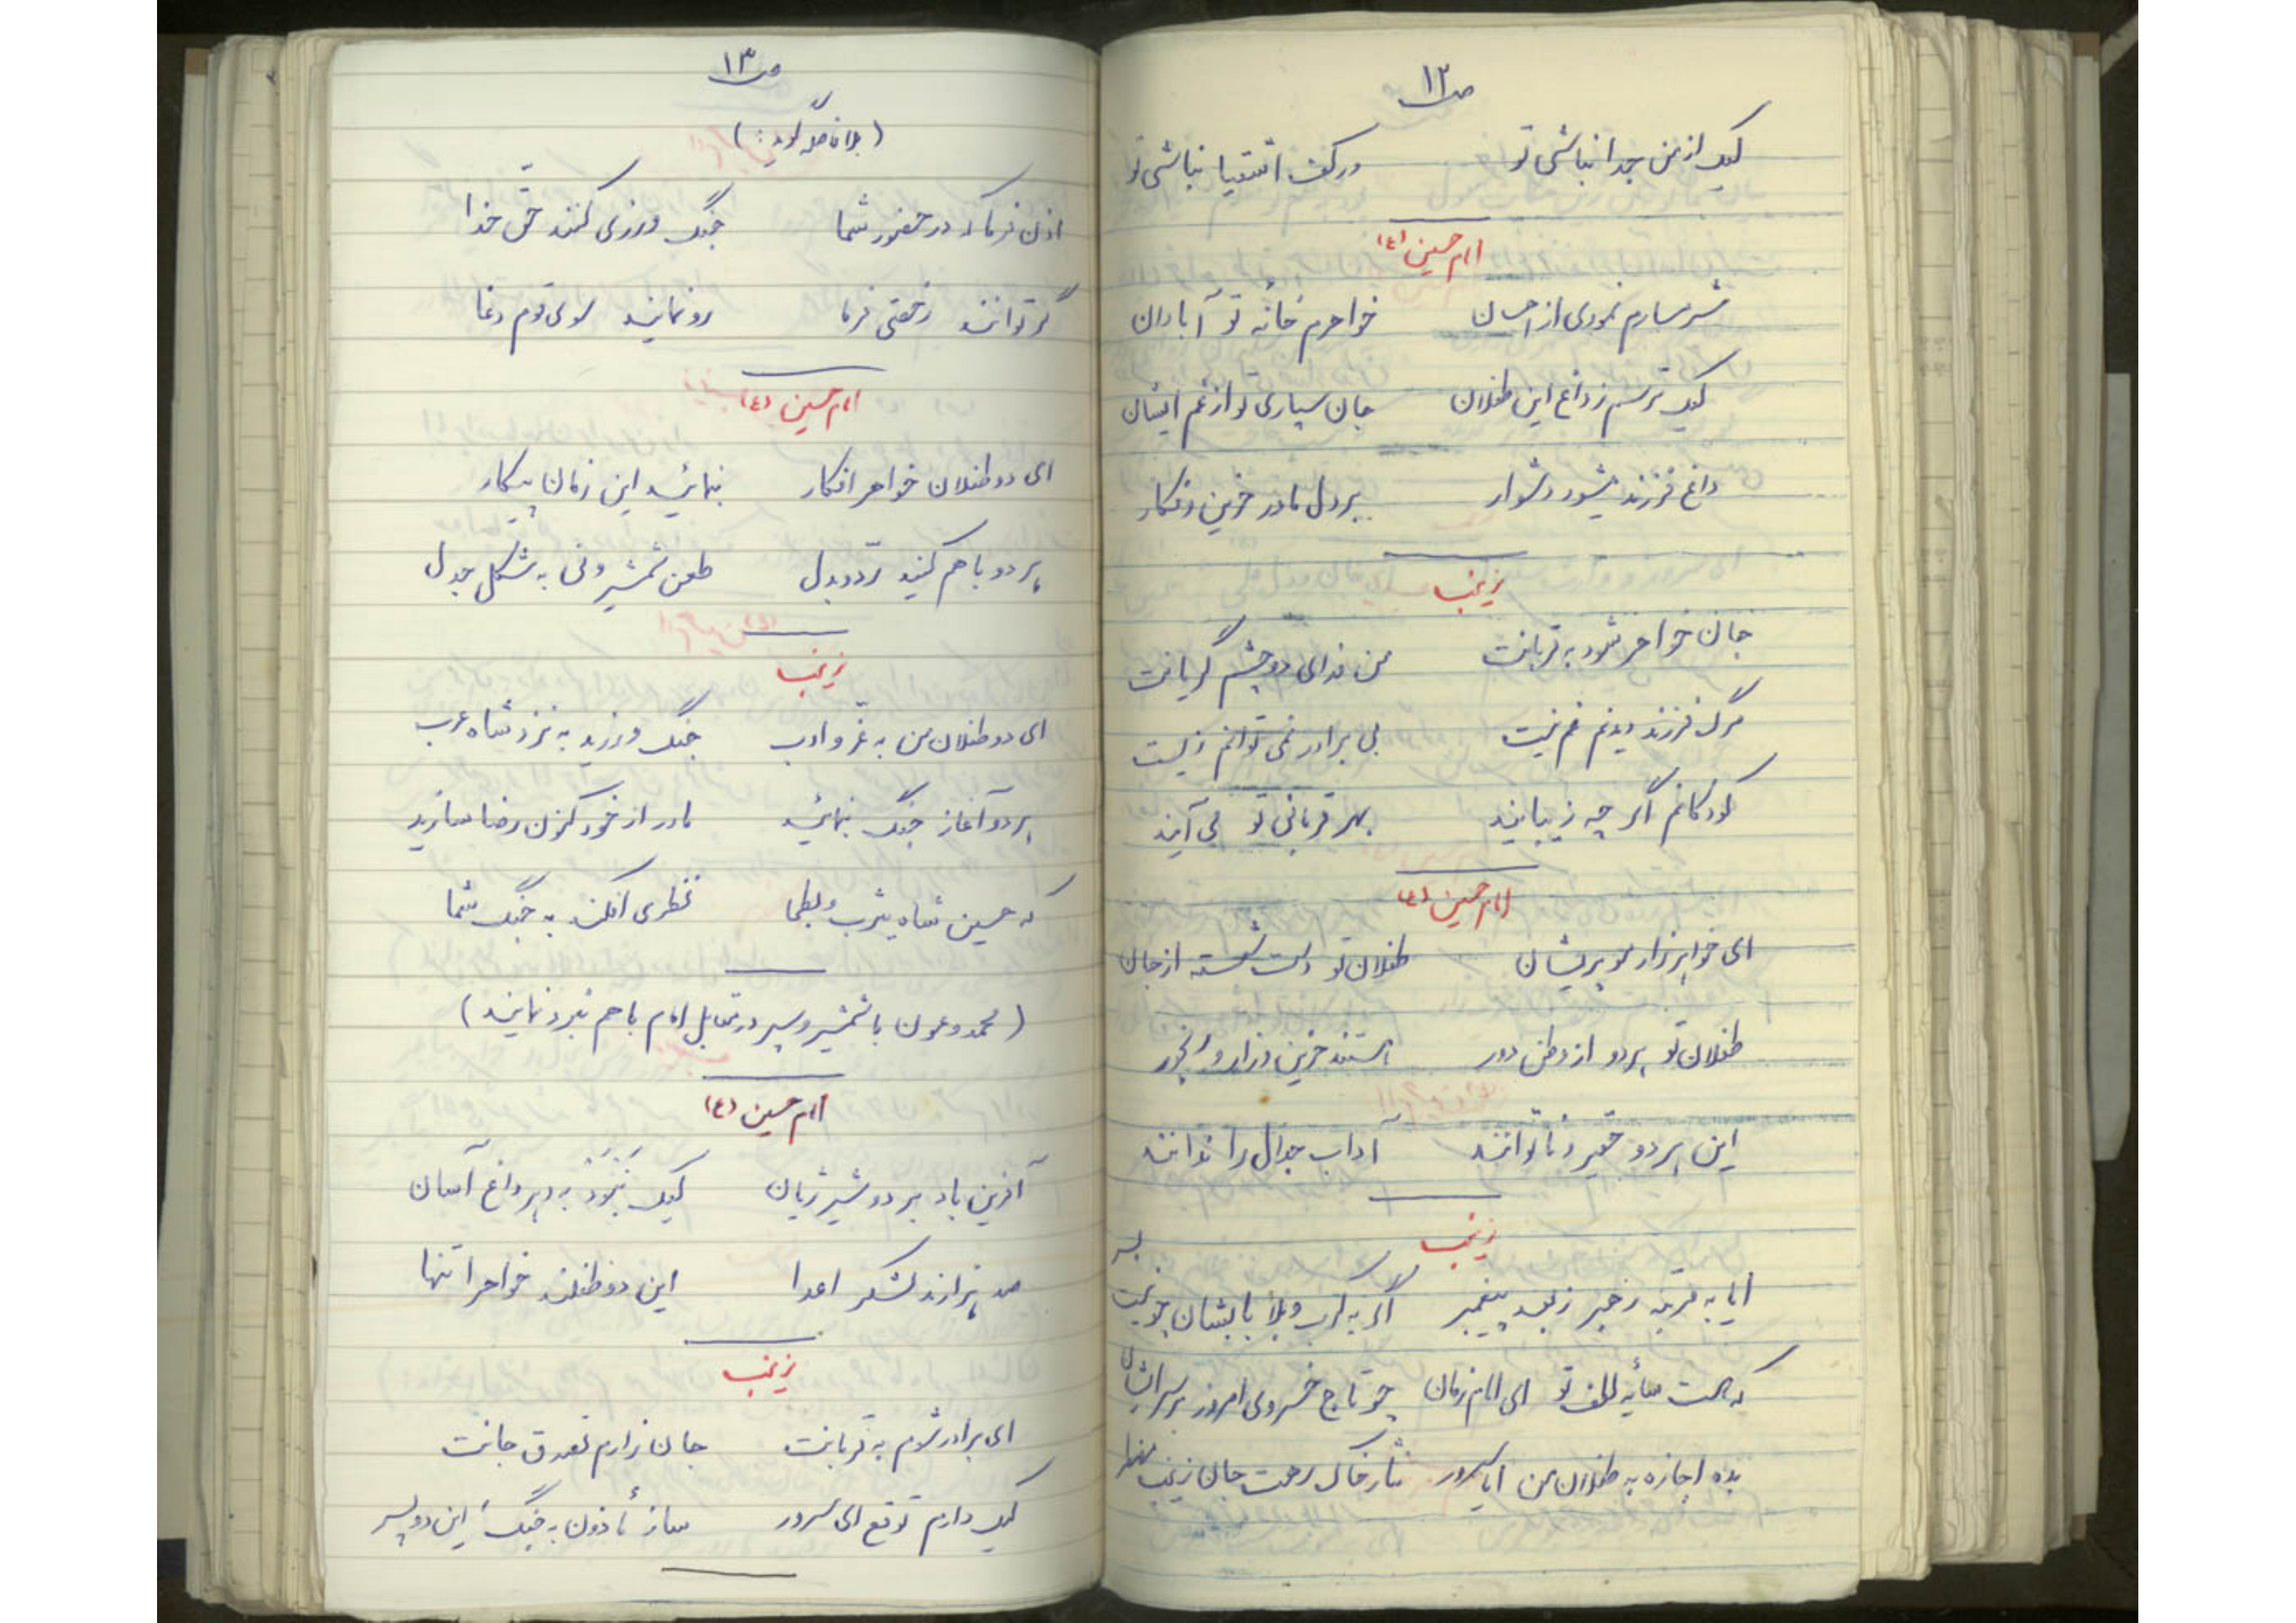 ص۱۲
لیک از من جدا نباشی تو در کف اشقیا نباشی تو
امام حسین (ع)
شرمسارم نمودی از احسان خواهرم خانه تو آبادان
لیک ترسم ز داغ این طفلان جان سپاری تو از غم ایشان
داغ فرزند میشود دشوار بر دل مادر حزین و فکار
زینب
جان خواهر شود به قربانت من فدای دو چشم گریانت
مرگ فرزند دیدنم غم نیست بی برادر نمی توانم زیست
کودکانم اگر چه زیبایند بهر قربانی تو می آیند
امام حسین (ع)
ای خواهر زار مو پریشان طفلان تو دست شسته از جان
طفلان تو هر دو از وطن دور هستند حزین و زار و رنجور
این هر دو حقیر و ناتوانند آداب جدال را ندانند
زینب
ایا به مرتبه رهبر ز بعد پیغمبر اگر به کرب و بلا بابشان چو نیست بسر
که هست سایه لطف تو ای امام زمان چو تاج خسروی امروز بر سر ایشان
بده اجازه به طفلان من ایا سرور نثار خاک رهت جان زینب مضطر
ص۱۳
(بلافاصله گوید:)
اذن فرما که در حضور شما جنگ ورزی کنند حق خدا
گر توانند رخصتی فرما رو نمایند سوی قوم دغا
امام حسین (ع)
ای دو طفلان خواهر افکار بنمائید این زمان پیکار
هر دو با هم کنید ردّ و بدل طعن شمشیر و نی به شکل جدل
زینب
ای دو طفلان من به عزّ و ادب جنگ ورزید به نزد شاه عرب
هر دو آغاز جنگ بنمائید مادر از خود کنون رضا سازید
که حسین شاه یثرب و بطحا نظری افکند به جنگ شما
(محمد و عون با شمشیر و سپر در مقابل امام با هم نبرد نمایند)
امام حسین (ع)
آفرین باد بر دو شیر ژیان لیک نبود به دهر داغ آسان
صد هزارند لشکر اعدا این دو طفلند خواهرا تنها
زینب
ای برادر شوم به قربانت جان زارم تصدق جانت
لیک دارم توقع ای سرور ساز مأذون به جنگ این دو پسر